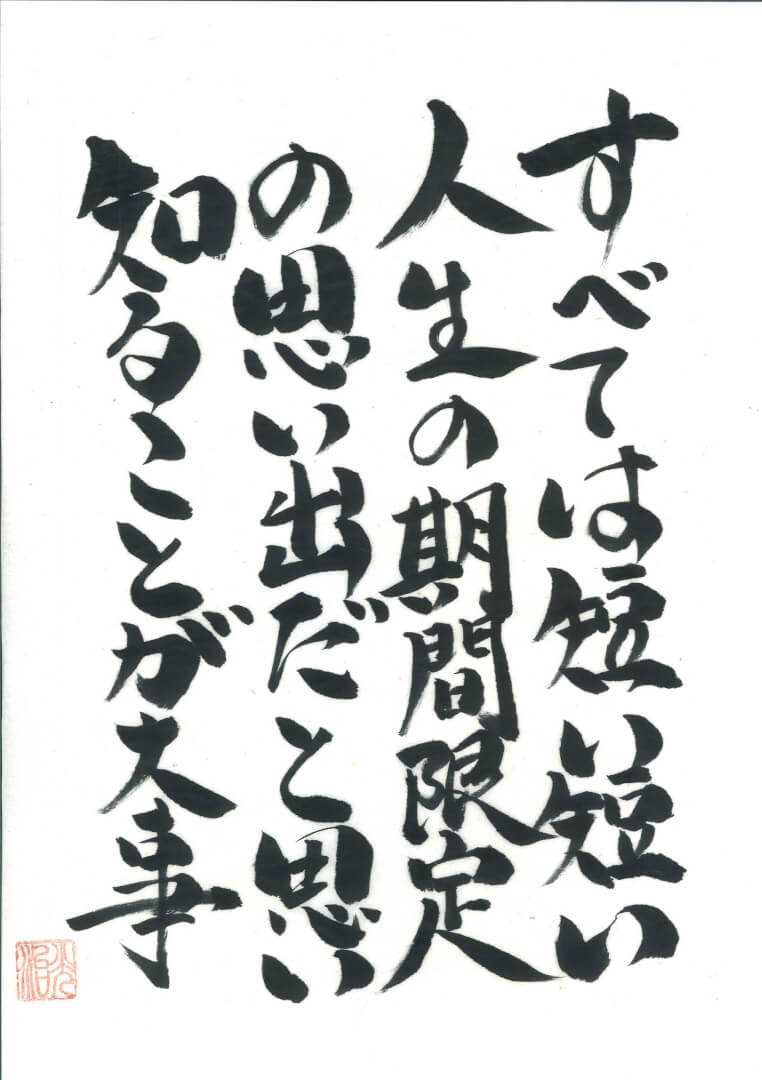 すべては短い短い
人生の期間限定
の思い出だと思い
知ることが大事